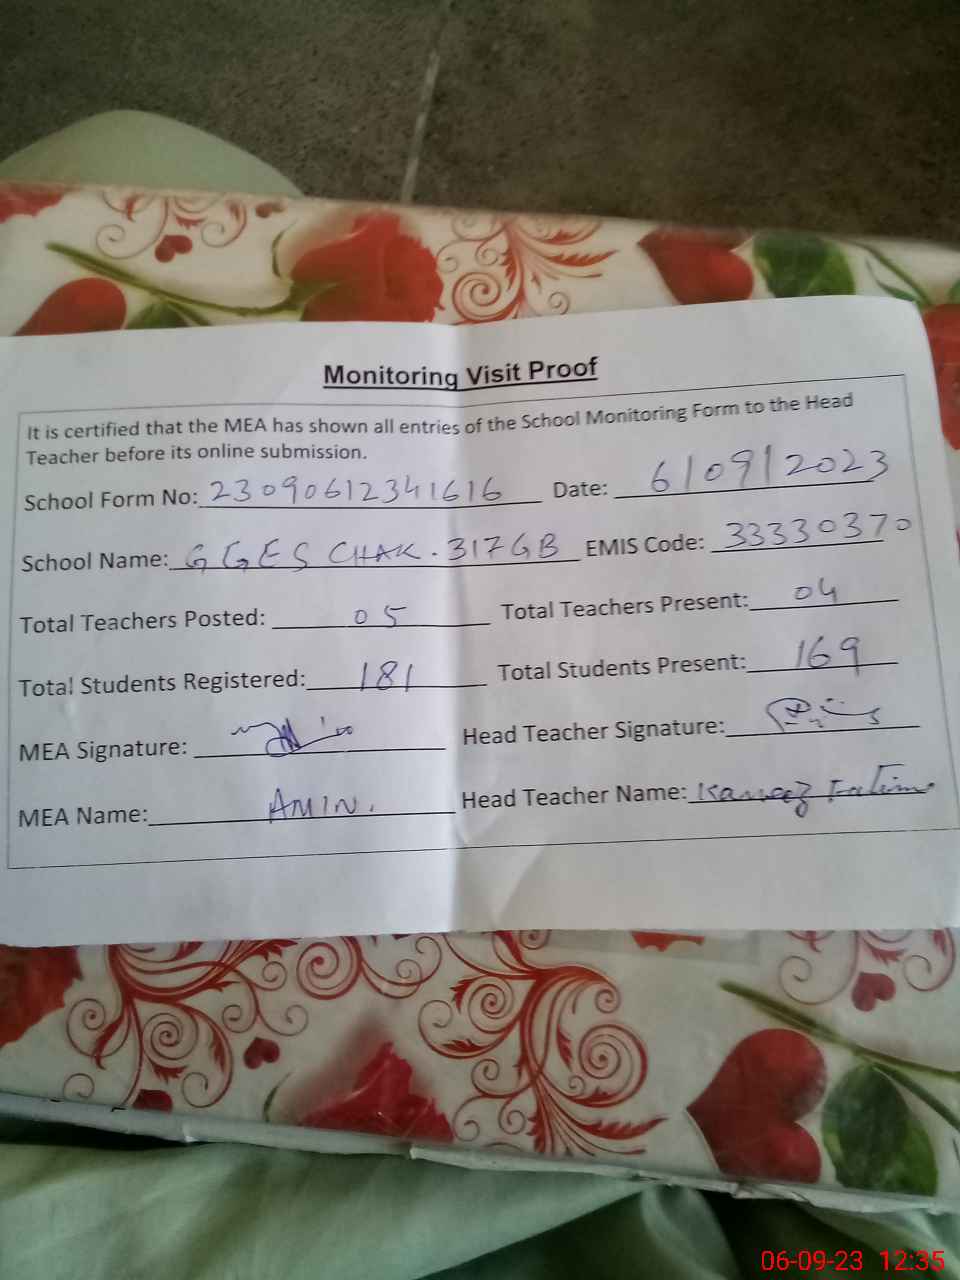 Monitoring Visit Proof
It is certified that the MEA has shown all entries of the School Monitoring Form to the Head
Teacher before its online submission.
School Form No: 23090612341616 Date: 6/09/2023
School Name: GGES CHAK. 317GB EMIS Code: 33330370
Total Teachers Posted: 05 Total Teachers Present: 04
Total Students Registered: 181 Total Students Present: 169
MEA Signature: Head Teacher Signature:
MEA Name: AMIN. Head Teacher Name: Kaneez Fatima
06-09-23 12:35